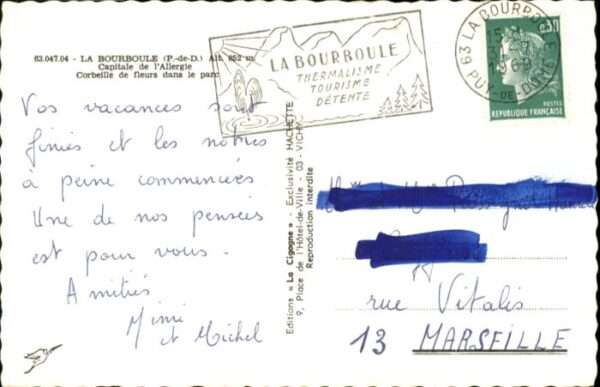 63.047.04 - LA BOURBOULE (P.-de-D.) Alt. 852 m
Capitale de l'Allergie
Corbeille de fleurs dans le parc
LA BOURBOULE
THERMALISME
TOURISME
DÉTENTE
63 LA BOURBOULE
1969
PUY-DE-DOME
0,30
POSTES
REPUBLIQUE FRANÇAISE
Vos vacances sont
finies et les nôtres
à peine commencées
Une de nos pensées
est pour vous.
Amitiés
Mimi
et Michel
Editions « La Cigogne » - Exclusivité HACHETTE
9, Place de l'Hôtel-de-Ville - 03 - VICHY
Reproduction interdite
rue Vitalis
13 MARSEILLE